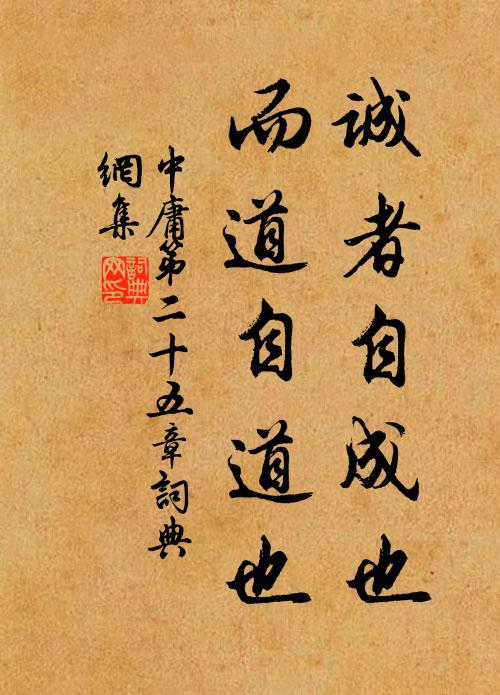 誠者自成也
而道自道也
中庸第二十五章詞典
網集
詞典網印